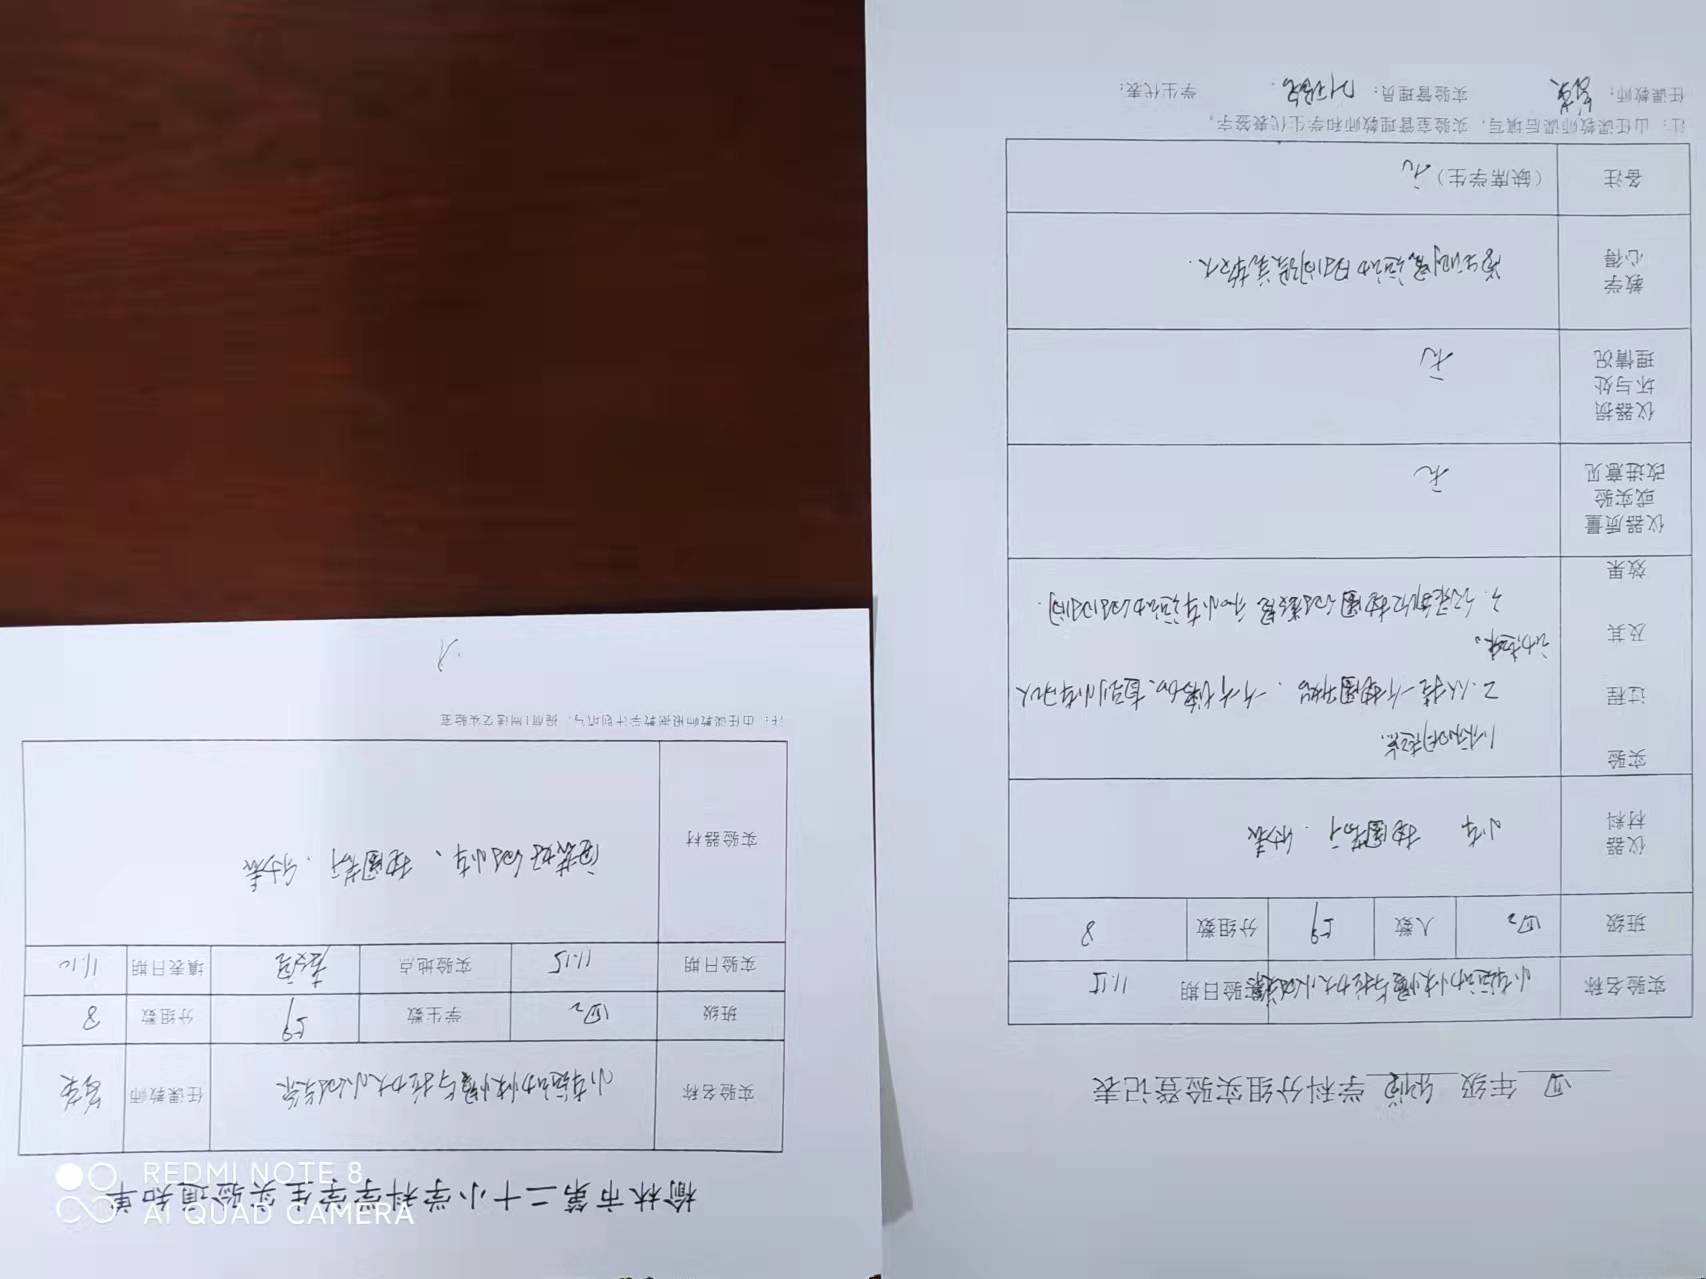 榆林市第二十小学科学学生实验通知单
实验名称 小车运动快慢与拉力大小的关系 任课教师
班级 四2 学生数 59 分组数 8
实验日期 11.15 实验地点 教室 填表日期 11.10
实验器材 组装好的小车、垫圈若干、钟表
注：由任课教师根据教学计划填写，提前1周送交实验室
四 年级 科学 学科分组实验登记表
实验名称 小车运动快慢与拉力大小的关系 实验日期 11.15
班级 四2 人数 59 分组数 8
仪器材料 小车 垫圈若干、钟表
实验过程及其效果
1.
2.从挂一个垫圈开始，一个个增加，直到小车可以
动起来。
3.记录每次垫圈的数量和小车运动的时间.
仪器质量或实验改进意见 无
仪器损坏与处理情况 无
教学心得 学生测量运动时间误差较大.
备注 （缺席学生）无
注：由任课教师课后填写，实验室管理教师和学生代表签字。
任课教师： 实验管理员： 学生代表：
REDMI NOTE 8
AI QUAD CAMERA